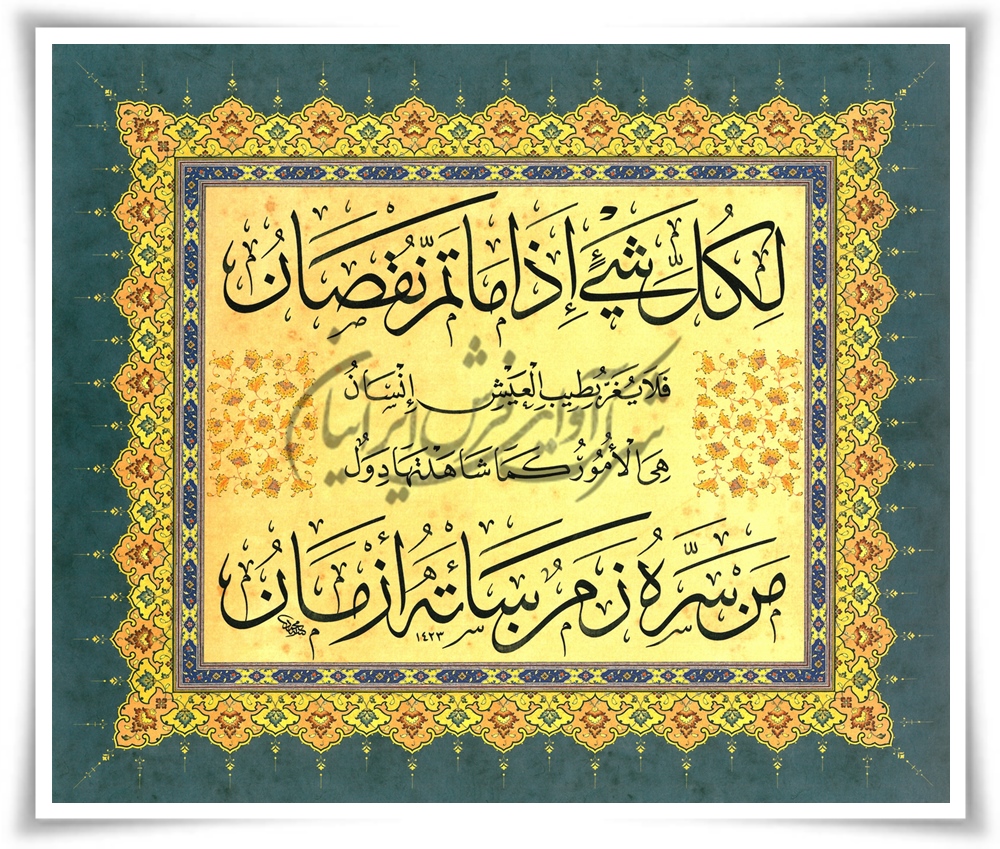 لِكُلِّ شَيْءٍ إِذَا مَا تَمَّ نُقْصَانُ
فَلَا يُغَرَّ بِطِيبِ الْعَيْشِ إِنْسَانُ
هِيَ الْأُمُورُ كَمَا شَاهَدْتَهَا دُوَلٌ
مَنْ سَرَّهُ زَمَنٌ سَاءَتْهُ أَزْمَانُ
١٤٢٣
فرش ایرانیان